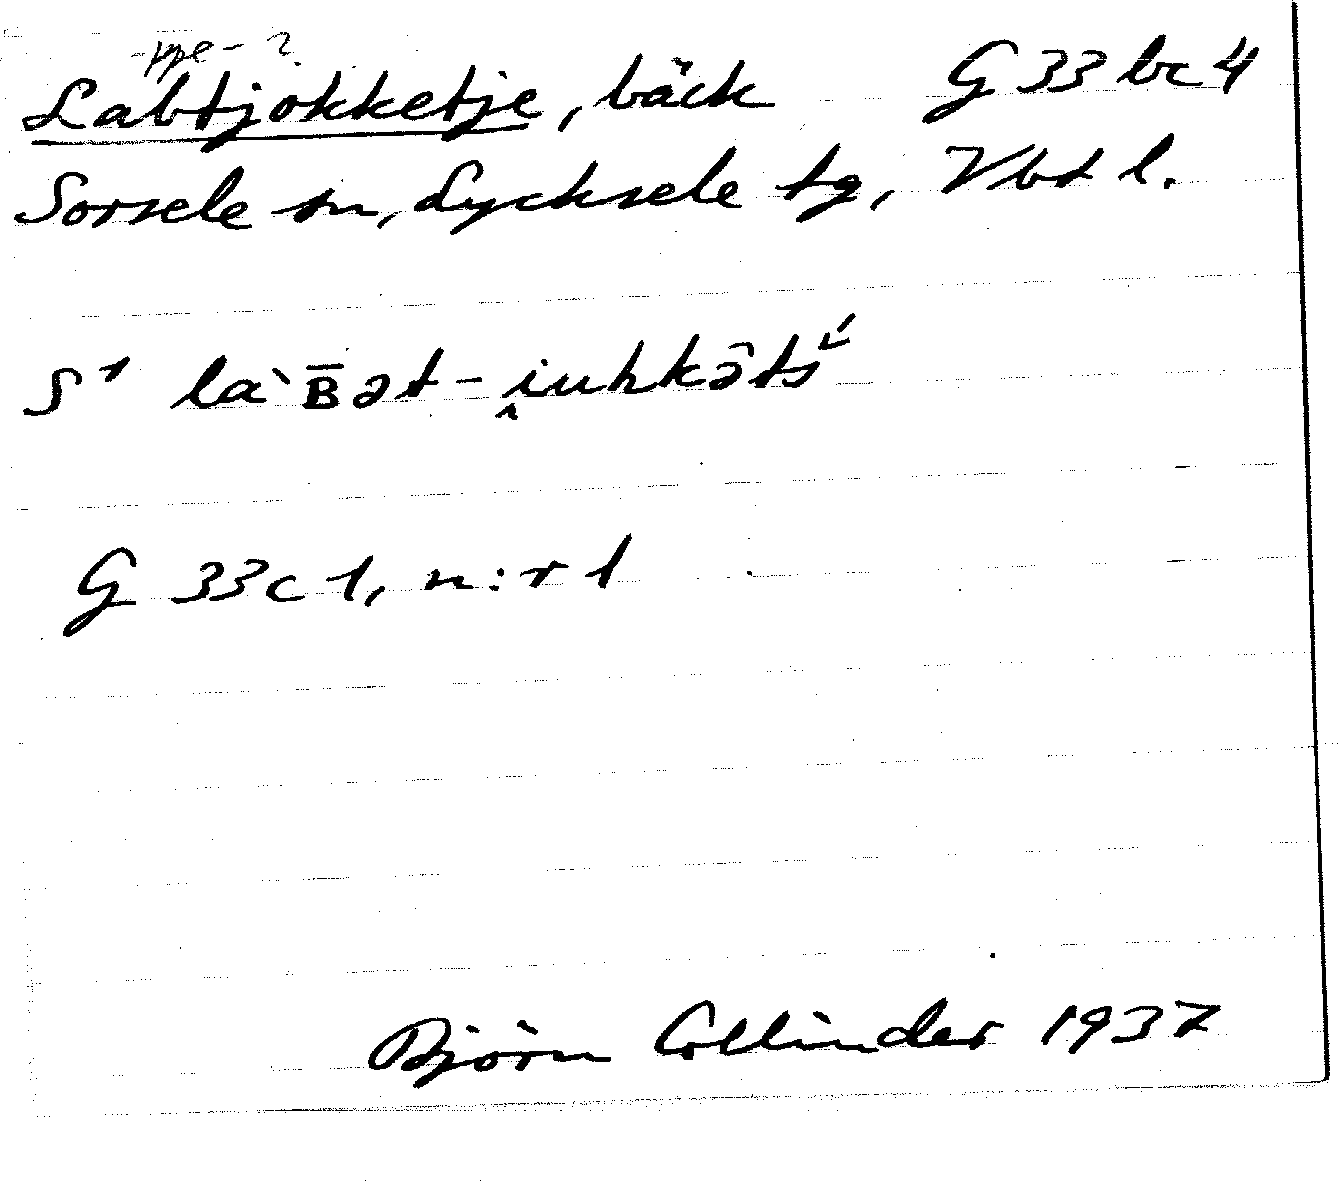 -ppe- ?
Labtjokketje, bäck G 33 bc 4
Sorsele sn, Lycksele tg, Vbd l.
S¹ la`B̄ət-i̭uhkə̑tś
G 33 c 1, n:r 1
Björn Collinder 1937